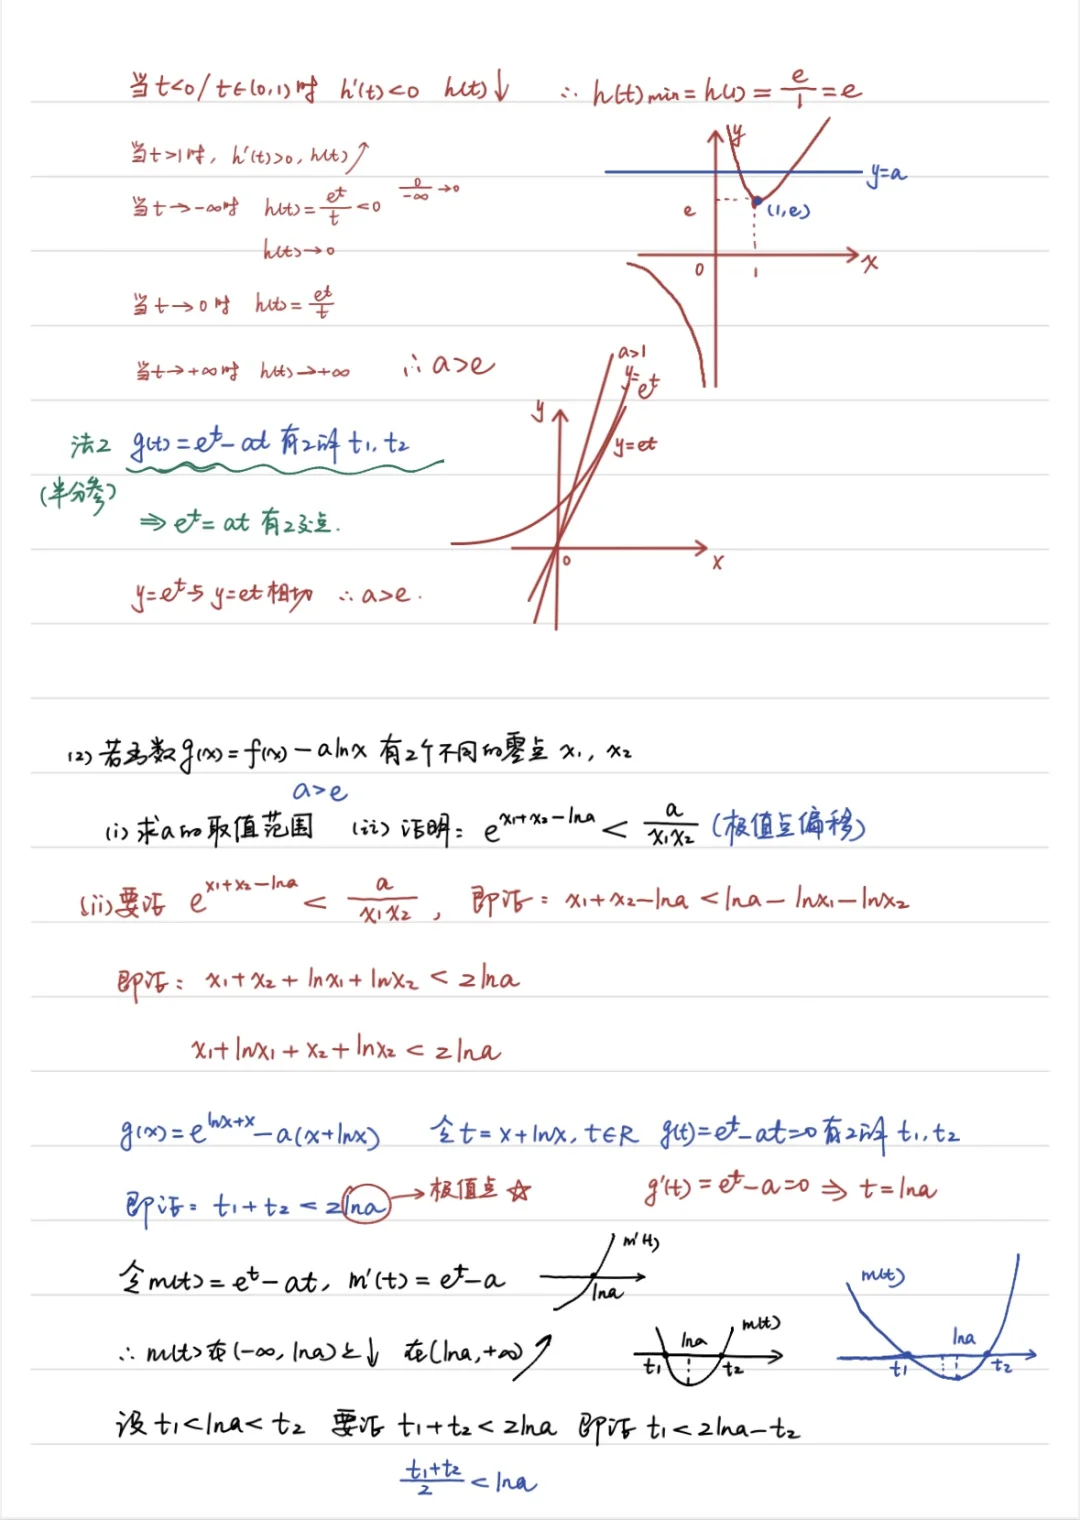 当t<0/t∈(0,1)时 h'(t)<0 h(t)↓ ∴h(t)min=h(1)=e/1=e
当t>1时, h'(t)>0, h(t)↗
当t→-∞时 h(t)=e^t/t<0 0/-∞→0
h(t)→0
当t→0时 h(t)=e^t/t
当t→+∞时 h(t)→+∞ ∴a>e
y
y=a
e
(1,e)
0
1
x
法2 g(t)=e^t-at有2解t1,t2
(半分参)
⇒e^t=at有2交点.
y=e^t与y=et相切 ∴a>e.
a>1
y=e^t
y
y=et
0
x
(2)若函数g(x)=f(x)-alnx有2个不同的零点x1, x2
a>e
(i)求a的取值范围 (ii)证明: e^(x1+x2-lna)<a/(x1x2) (极值点偏移)
(ii)要证 e^(x1+x2-lna)<a/(x1x2), 即证: x1+x2-lna<lna-lnx1-lnx2
即证: x1+x2+lnx1+lnx2<2lna
x1+lnx1+x2+lnx2<2lna
g(x)=e^(lnx+x)-a(x+lnx) 令t=x+lnx, t∈R g(t)=e^t-at=0有2解t1,t2
即证: t1+t2<2lna→极值点☆ g'(t)=e^t-a=0⇒t=lna
令m(t)=e^t-at, m'(t)=e^t-a
m'(t)
lna
m(t)
lna
t1
t2
∴m(t)在(-∞,lna)上↓ 在(lna,+∞)↗
lna
m(t)
t1
t2
设t1<lna<t2 要证t1+t2<2lna 即证t1<2lna-t2
(t1+t2)/2<lna